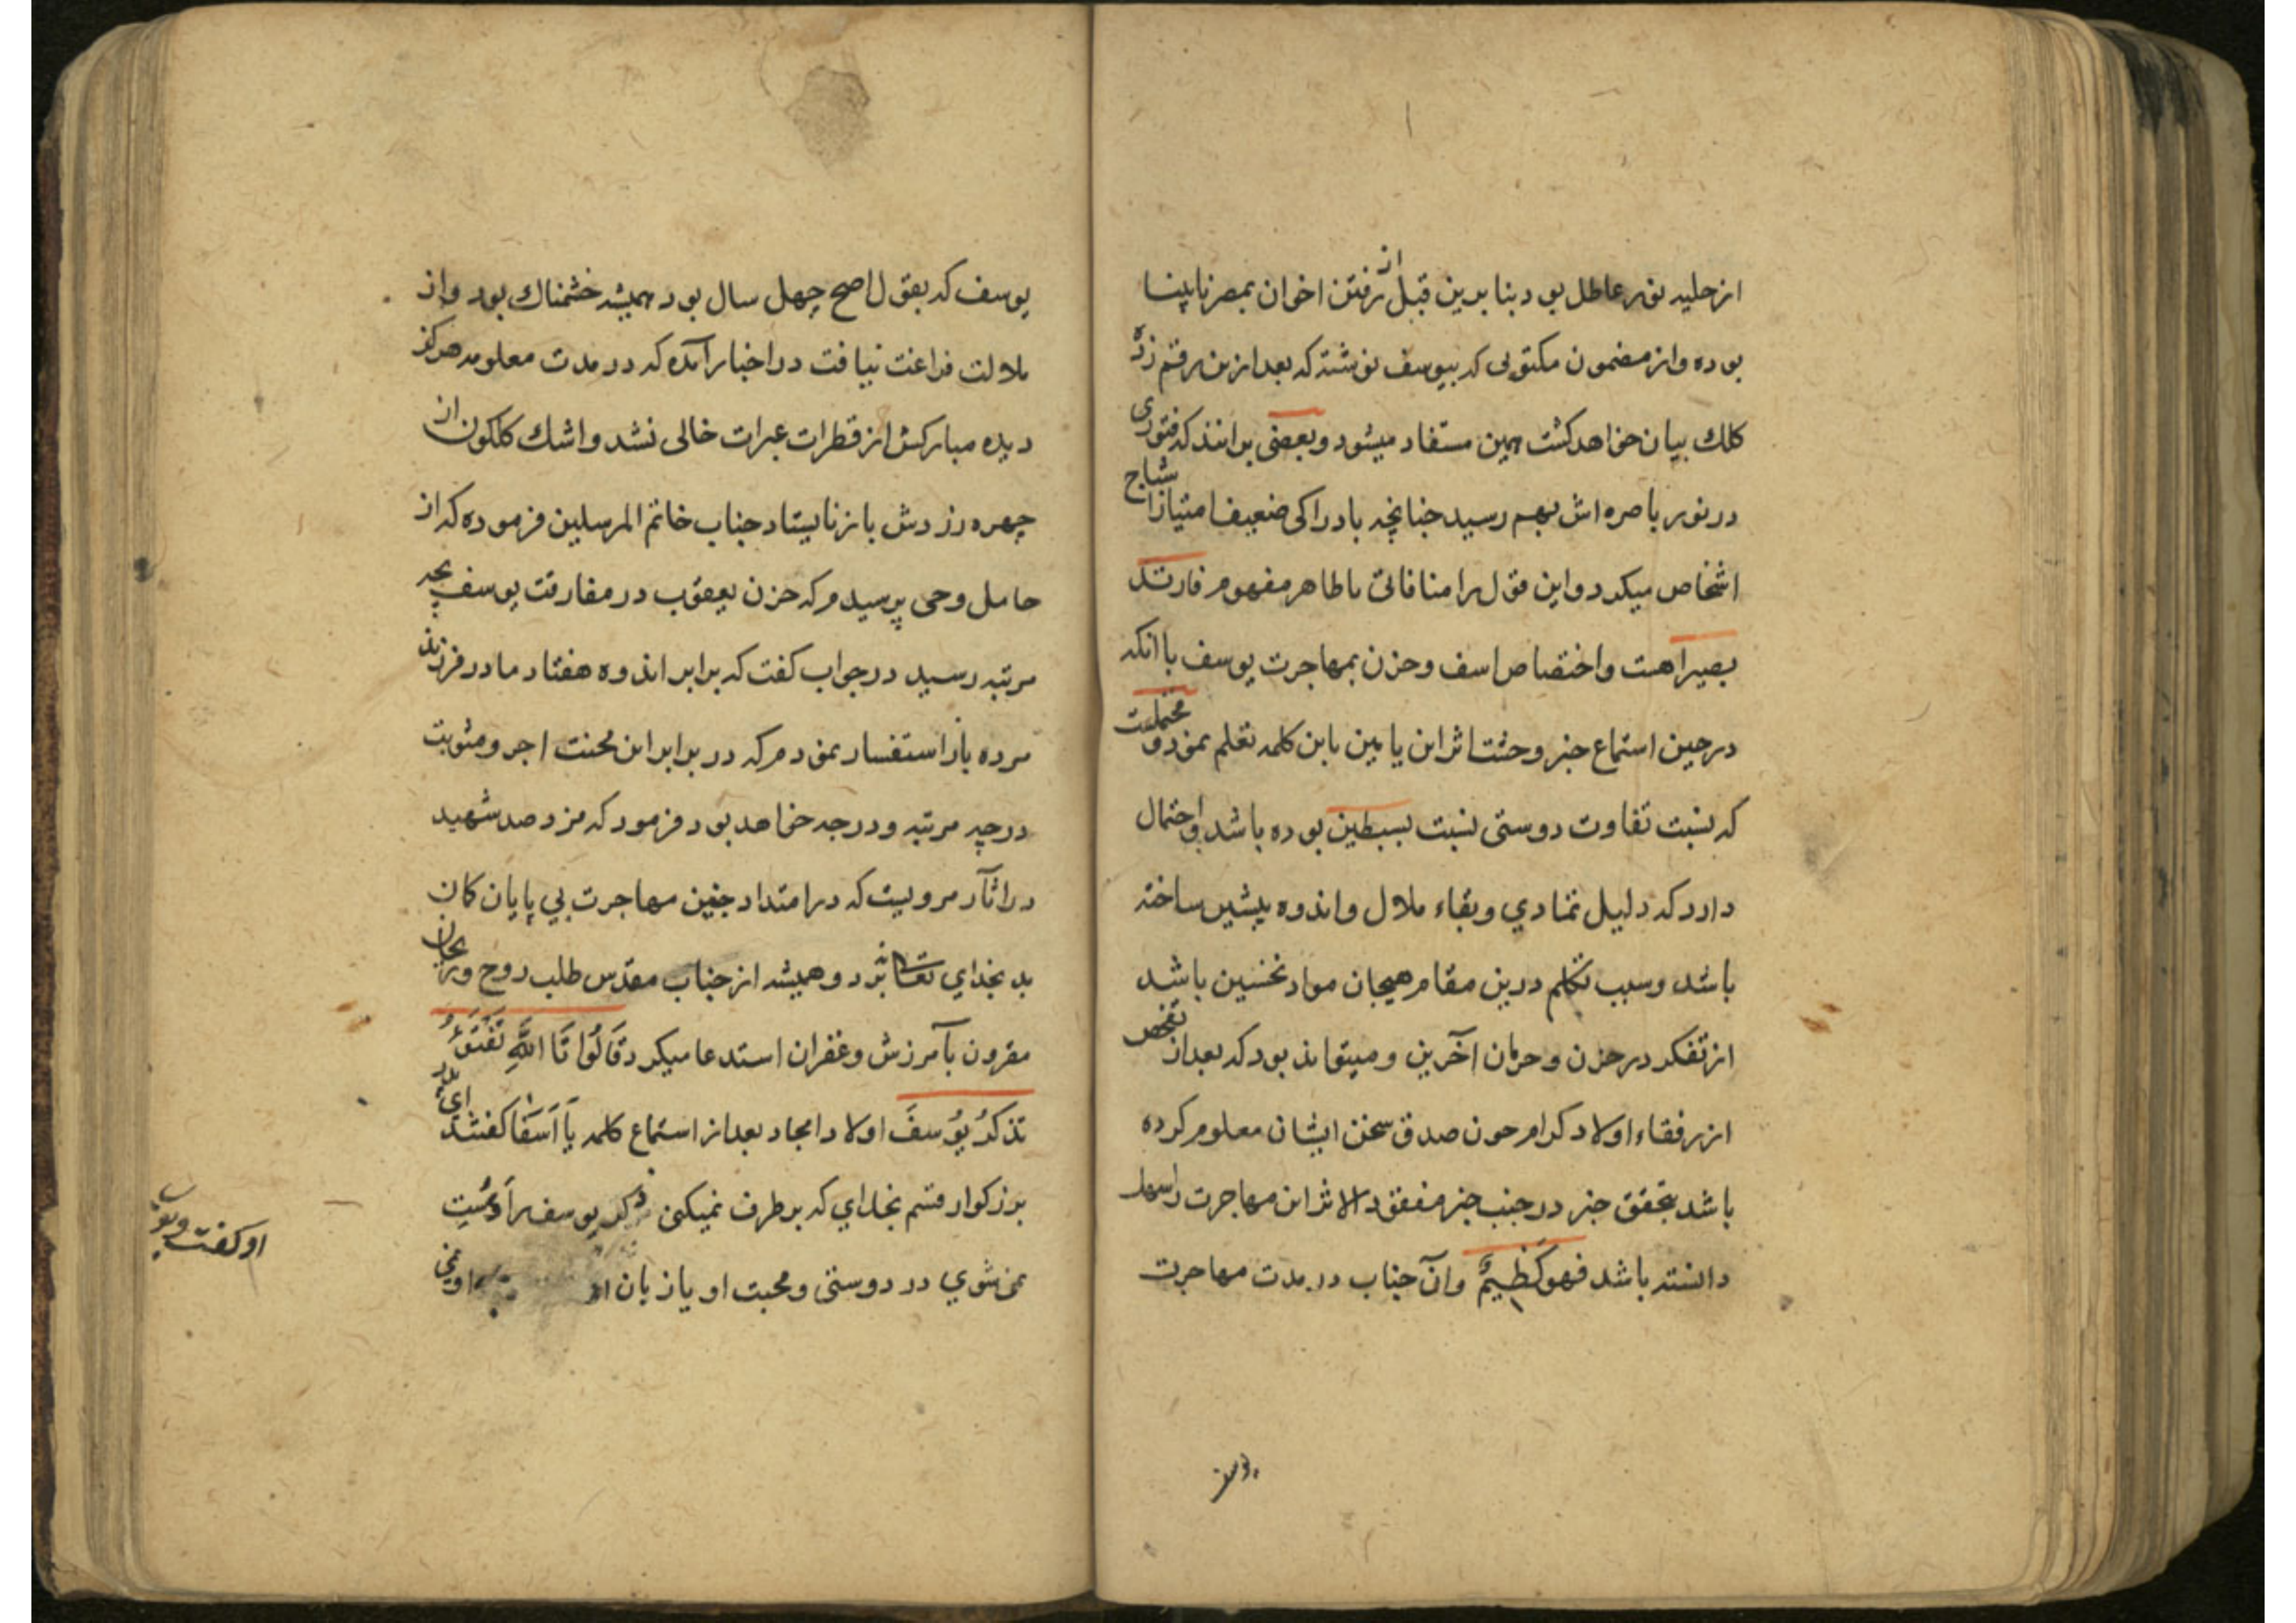 از حلیه نور عاطل بود بنا بدین قبل از رفتن اخوان بمصر نابینا
بوده واز مضمون مکتوبی که بیوسف نوشته که بعد ازین رقم زدهٔ
کلك بیان خواهد کشت همین مستفاد میشود و بعضی برانند که فتوری
در نور باصره اش بهم رسید چنانچه بادراکی ضعیف امتیاز اشباح
اشخاص میکرد و این قول را منافاتی با ظاهر مفهوم فارتد
بصیرا هست واختصاص اسف وحزن بمهاجرت یوسف با انکه
در حین استماع خبر وحشت اثر ابن یامین باین کلمه تعلم نمود و محتملست
که بنسبت تفاوت دوستی نسبت بسبطین بوده باشد واحتمال
دارد که دلیل تمادي وبقاء ملال واندوه پیشین ساخته
باشد وسبب تکلم درین مقام هیجان مواد نخستین باشد
از تفکر در حزن وحرمان آخرین ومیتواند بود که بعد از تفحص
از رفقاء اولاد کرام چون صدق سخن ایشان معلوم کرده
باشد بتحقق خبر در جنب خبر مفقود الاثر این مهاجرت را سهل
دانسته باشد فهو کظیمٌ وآن جناب در مدت مهاجرت
یوسف
یوسف که بقول اصح چهل سال بود همیشه خشمناك بود واز
ملالت فراغت نیافت در اخبار آمده که در مدت معلومه هرکز
دیده مبارکش از قطرات عبرات خالی نشد واشك کلکون از
چهره زردش باز نایستاد جناب خاتم المرسلین فرموده که از
حامل وحی پرسیدم که حزن یعقوب در مفارقت یوسف بچه
مرتبه رسید در جواب کفت که برابر اندوه هفتاد مادر فرزند
مرده باز استفسار نمودم که در برابر این محنت اجر ومثوبت
در چه مرتبه ودرجه خواهد بود فرمود که مزد صد شهید
در اثآر مرویست که در امتداد چنین مهاجرت بي پایان کان
بد بخداي تعالی نبرد و همیشه از جناب مقدس طلب روح وریحان
مقرون بآمرزش وغفران استدعا میکرد قَالُوا تَا اللَّهِ تَفْتَؤُ
تذکرُ یُوسفَ اولاد امجاد بعد از استماع کلمه یَآ اَسَفَا کفتند ای پدر
بزرکوار قسم بخداي که بر طرف نمیکنی ذکر یوسف را وسُست
نمی شوي در دوستی ومحبت او یا زبان از او نمی
او کفت ویو